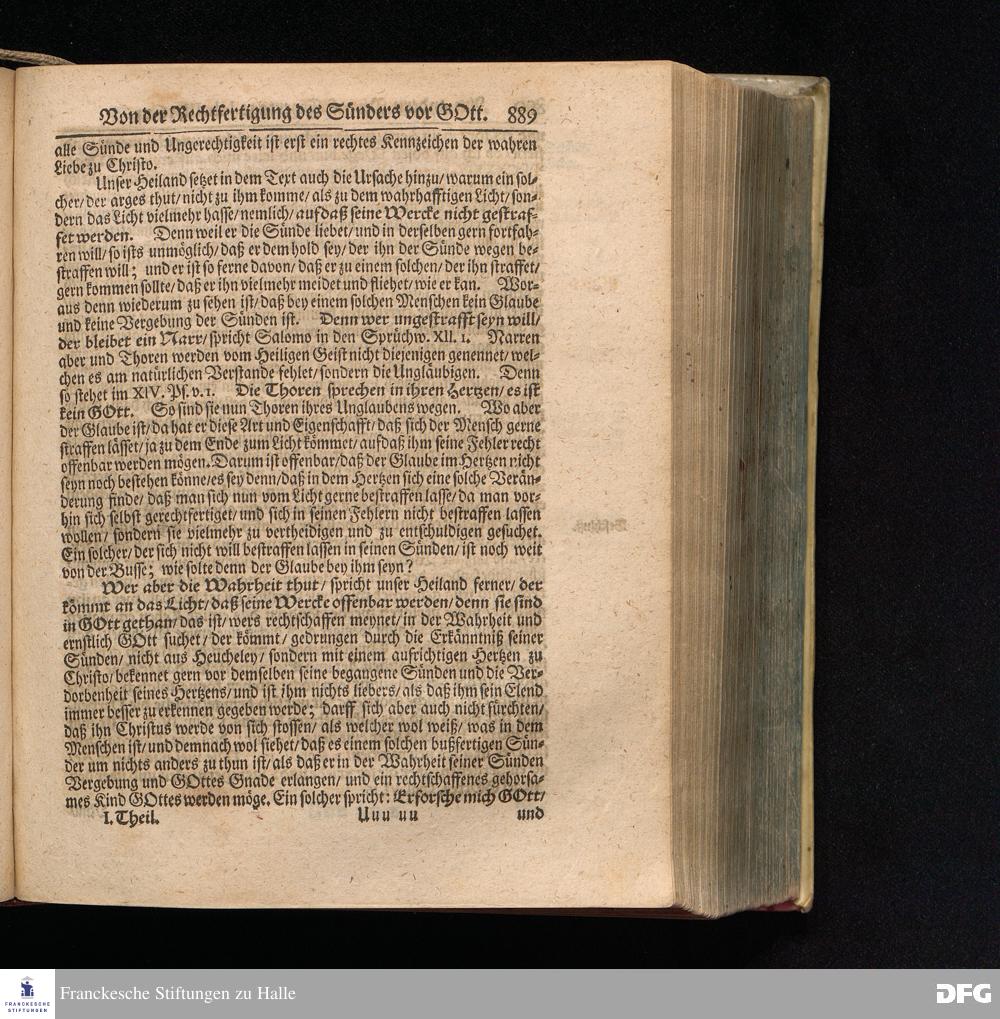 Von der Rechtfertigung des Sünders vor GOtt. 889
alle Sünde und Ungerechtigkeit ist erst ein rechtes Kennzeichen der wahren
Liebe zu Christo.
Unser Heiland setzet in dem Text auch die Ursache hinzu/ warum ein sol-
cher/ der arges thut/ nicht zu ihm komme/ als zu dem wahrhafftigen Licht/ son-
dern das Licht vielmehr hasse/ nemlich/ aufdaß seine Wercke nicht gestraf-
fet werden. Denn weil er die Sünde liebet/ und in derselben gern fortfah-
ren will/ so ists unmöglich/ daß er dem hold sey/ der ihn der Sünde wegen be-
straffen will; und er ist so ferne davon/ daß er zu einem solchen/ der ihn straffet/
gern kommen sollte/ daß er ihn vielmehr meidet und fliehet/ wie er kan. Wor-
aus denn wiederum zu sehen ist/ daß bey einem solchen Menschen kein Glaube
und keine Vergebung der Sünden ist. Denn wer ungestrafft seyn will/
der bleibet ein Narr/ spricht Salomo in den Sprüchw. XII. 1. Narren
aber und Thoren werden vom Heiligen Geist nicht diejenigen genennet/ wel-
chen es am natürlichen Verstande fehlet/ sondern die Ungläubigen. Denn
so stehet im XIV. Ps. v. 1. Die Thoren sprechen in ihren Hertzen/ es ist
kein GOtt. So sind sie nun Thoren ihres Unglaubens wegen. Wo aber
der Glaube ist/ da hat er diese Art und Eigenschafft/ daß sich der Mensch gerne
straffen lässet/ ja zu dem Ende zum Licht kömmet/ aufdaß ihm seine Fehler recht
offenbar werden mögen. Darum ist offenbar/ daß der Glaube im Hertzen nicht
seyn noch bestehen könne/ es sey denn/ daß in dem Hertzen sich eine solche Verän-
derung finde/ daß man sich nun vom Licht gerne bestraffen lasse/ da man vor-
hin sich selbst gerechtfertiget/ und sich in seinen Fehlern nicht bestraffen lassen
wollen/ sondern sie vielmehr zu vertheidigen und zu entschuldigen gesuchet.
Ein solcher/ der sich nicht will bestraffen lassen in seinen Sünden/ ist noch weit
von der Busse; wie solte denn der Glaube bey ihm seyn?
Wer aber die Wahrheit thut/ spricht unser Heiland ferner/ der
kömmt an das Licht/ daß seine Wercke offenbar werden/ denn sie sind
in GOtt gethan/ das ist/ wers rechtschaffen meynet/ in der Wahrheit und
ernstlich GOtt suchet/ der kömmt/ gedrungen durch die Erkänntniß seiner
Sünden/ nicht aus Heucheley/ sondern mit einem aufrichtigen Hertzen zu
Christo/ bekennet gern vor demselben seine begangene Sünden und die Ver-
dorbenheit seines Hertzens/ und ist ihm nichts liebers/ als daß ihm sein Elend
immer besser zu erkennen gegeben werde; darff sich aber auch nicht fürchten/
daß ihn Christus werde von sich stossen/ als welcher wol weiß/ was in dem
Menschen ist/ und demnach wol siehet/ daß es einem solchen bußfertigen Sün-
der um nichts anders zu thun ist/ als daß er in der Wahrheit seiner Sünden
Vergebung und GOttes Gnade erlangen/ und ein rechtschaffenes gehorsa-
mes Kind GOttes werden möge. Ein solcher spricht: Erforsche mich GOtt/
I. Theil. Uuu uu und
FRANCKESCHE
STIFTUNGEN
Franckesche Stiftungen zu Halle
DFG